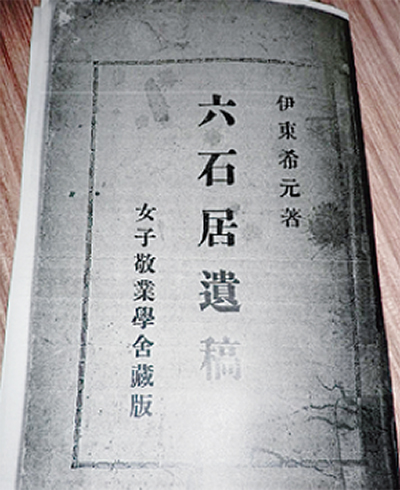 伊東希元著
六石居遺稿
女子敬業學舍藏版